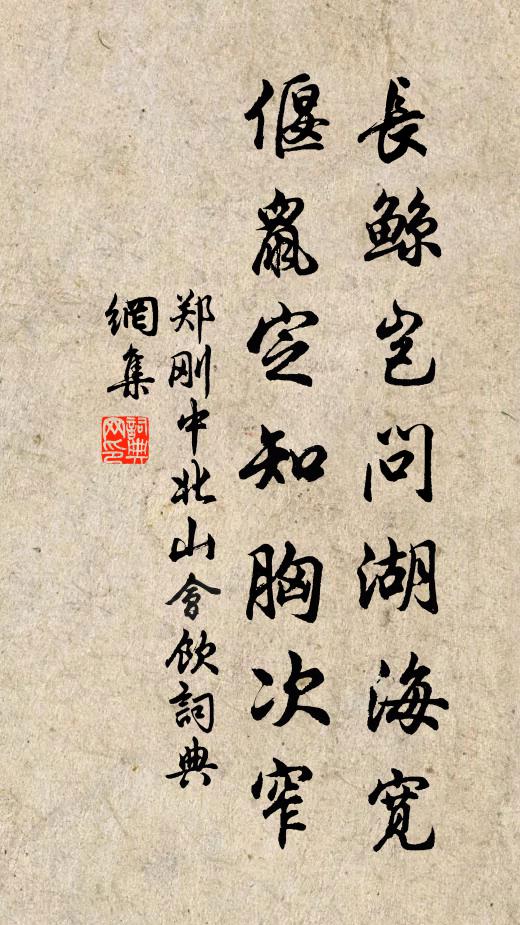 長鲸岂問湖海寬
偃鼠定知胸次窄
郑刚中北山會飲詞典
網集
詞典
网印